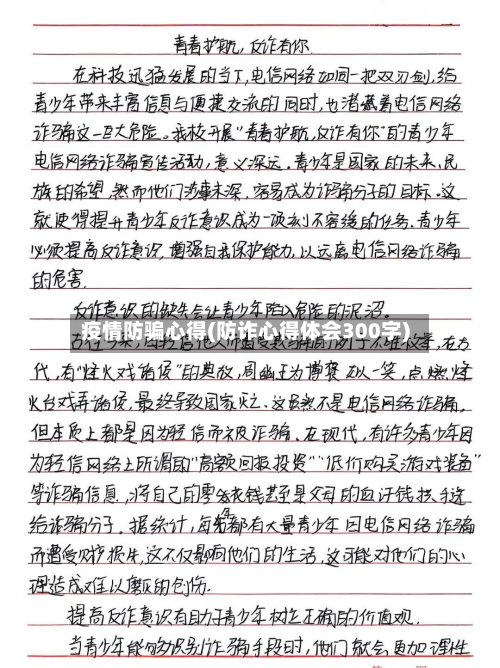 青春护航，反诈有你
在科技迅猛发展的当下，电信网络如同一把双刃剑，给
青少年带来丰富信息与便捷交流的同时，也潜藏着电信网络
诈骗这一巨大危险。我校开展"青春护航，反诈有你"的青少年
电信网络诈骗宣传活动，意义深远。青少年是国家的未来、民
族的希望，然而他们涉事未深，容易成为诈骗分子的目标。这
就使得提升青少年反诈意识成为一项刻不容缓的任务。青少年
必须提高反诈意识，增强自我保护能力，以远离电信网络诈骗
的危害。
反诈意识的缺失会让青少年陷入危险的泥沼。
疫情防骗心得(防诈心得体会300字)
在古
代，有"烽火戏诸侯"的典故，周幽王为博褒姒一笑，点燃烽
火台戏弄诸侯，最终导致国家灭亡。这虽然不是电信网络诈骗，
但本质上都是因为轻信而被诈骗。在现代，有许多青少年因
为轻信网络上所谓的"高额回报投资""低价购买游戏装备"
等诈骗信息，将自己的零花钱甚至是父母的血汗钱拱手送
给诈骗分子。据统计，每年都有大量青少年因电信网络诈骗
而遭受财产损失，这不仅影响他们的生活，这可能对他们的心
理造成难以磨灭的创伤。
提高反诈意识有助于青少年树立正确的价值观。
当青少年能够识别诈骗手段时，他们就会更加理性